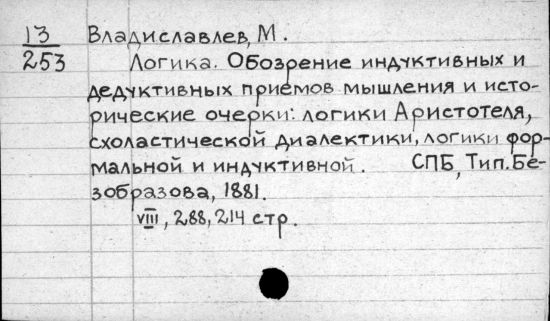 13 Владиславлев, М.
253 Логика. Обозрение индуктивных и
дедуктивных приемов мышления и исто-
рические очерки: логики Аристотеля,
схоластической диалектики, логики фор-
мальной и индуктивной. СПБ, Тип. Бе-
зобразова, 1881.
VIII, 288, 214 стр.